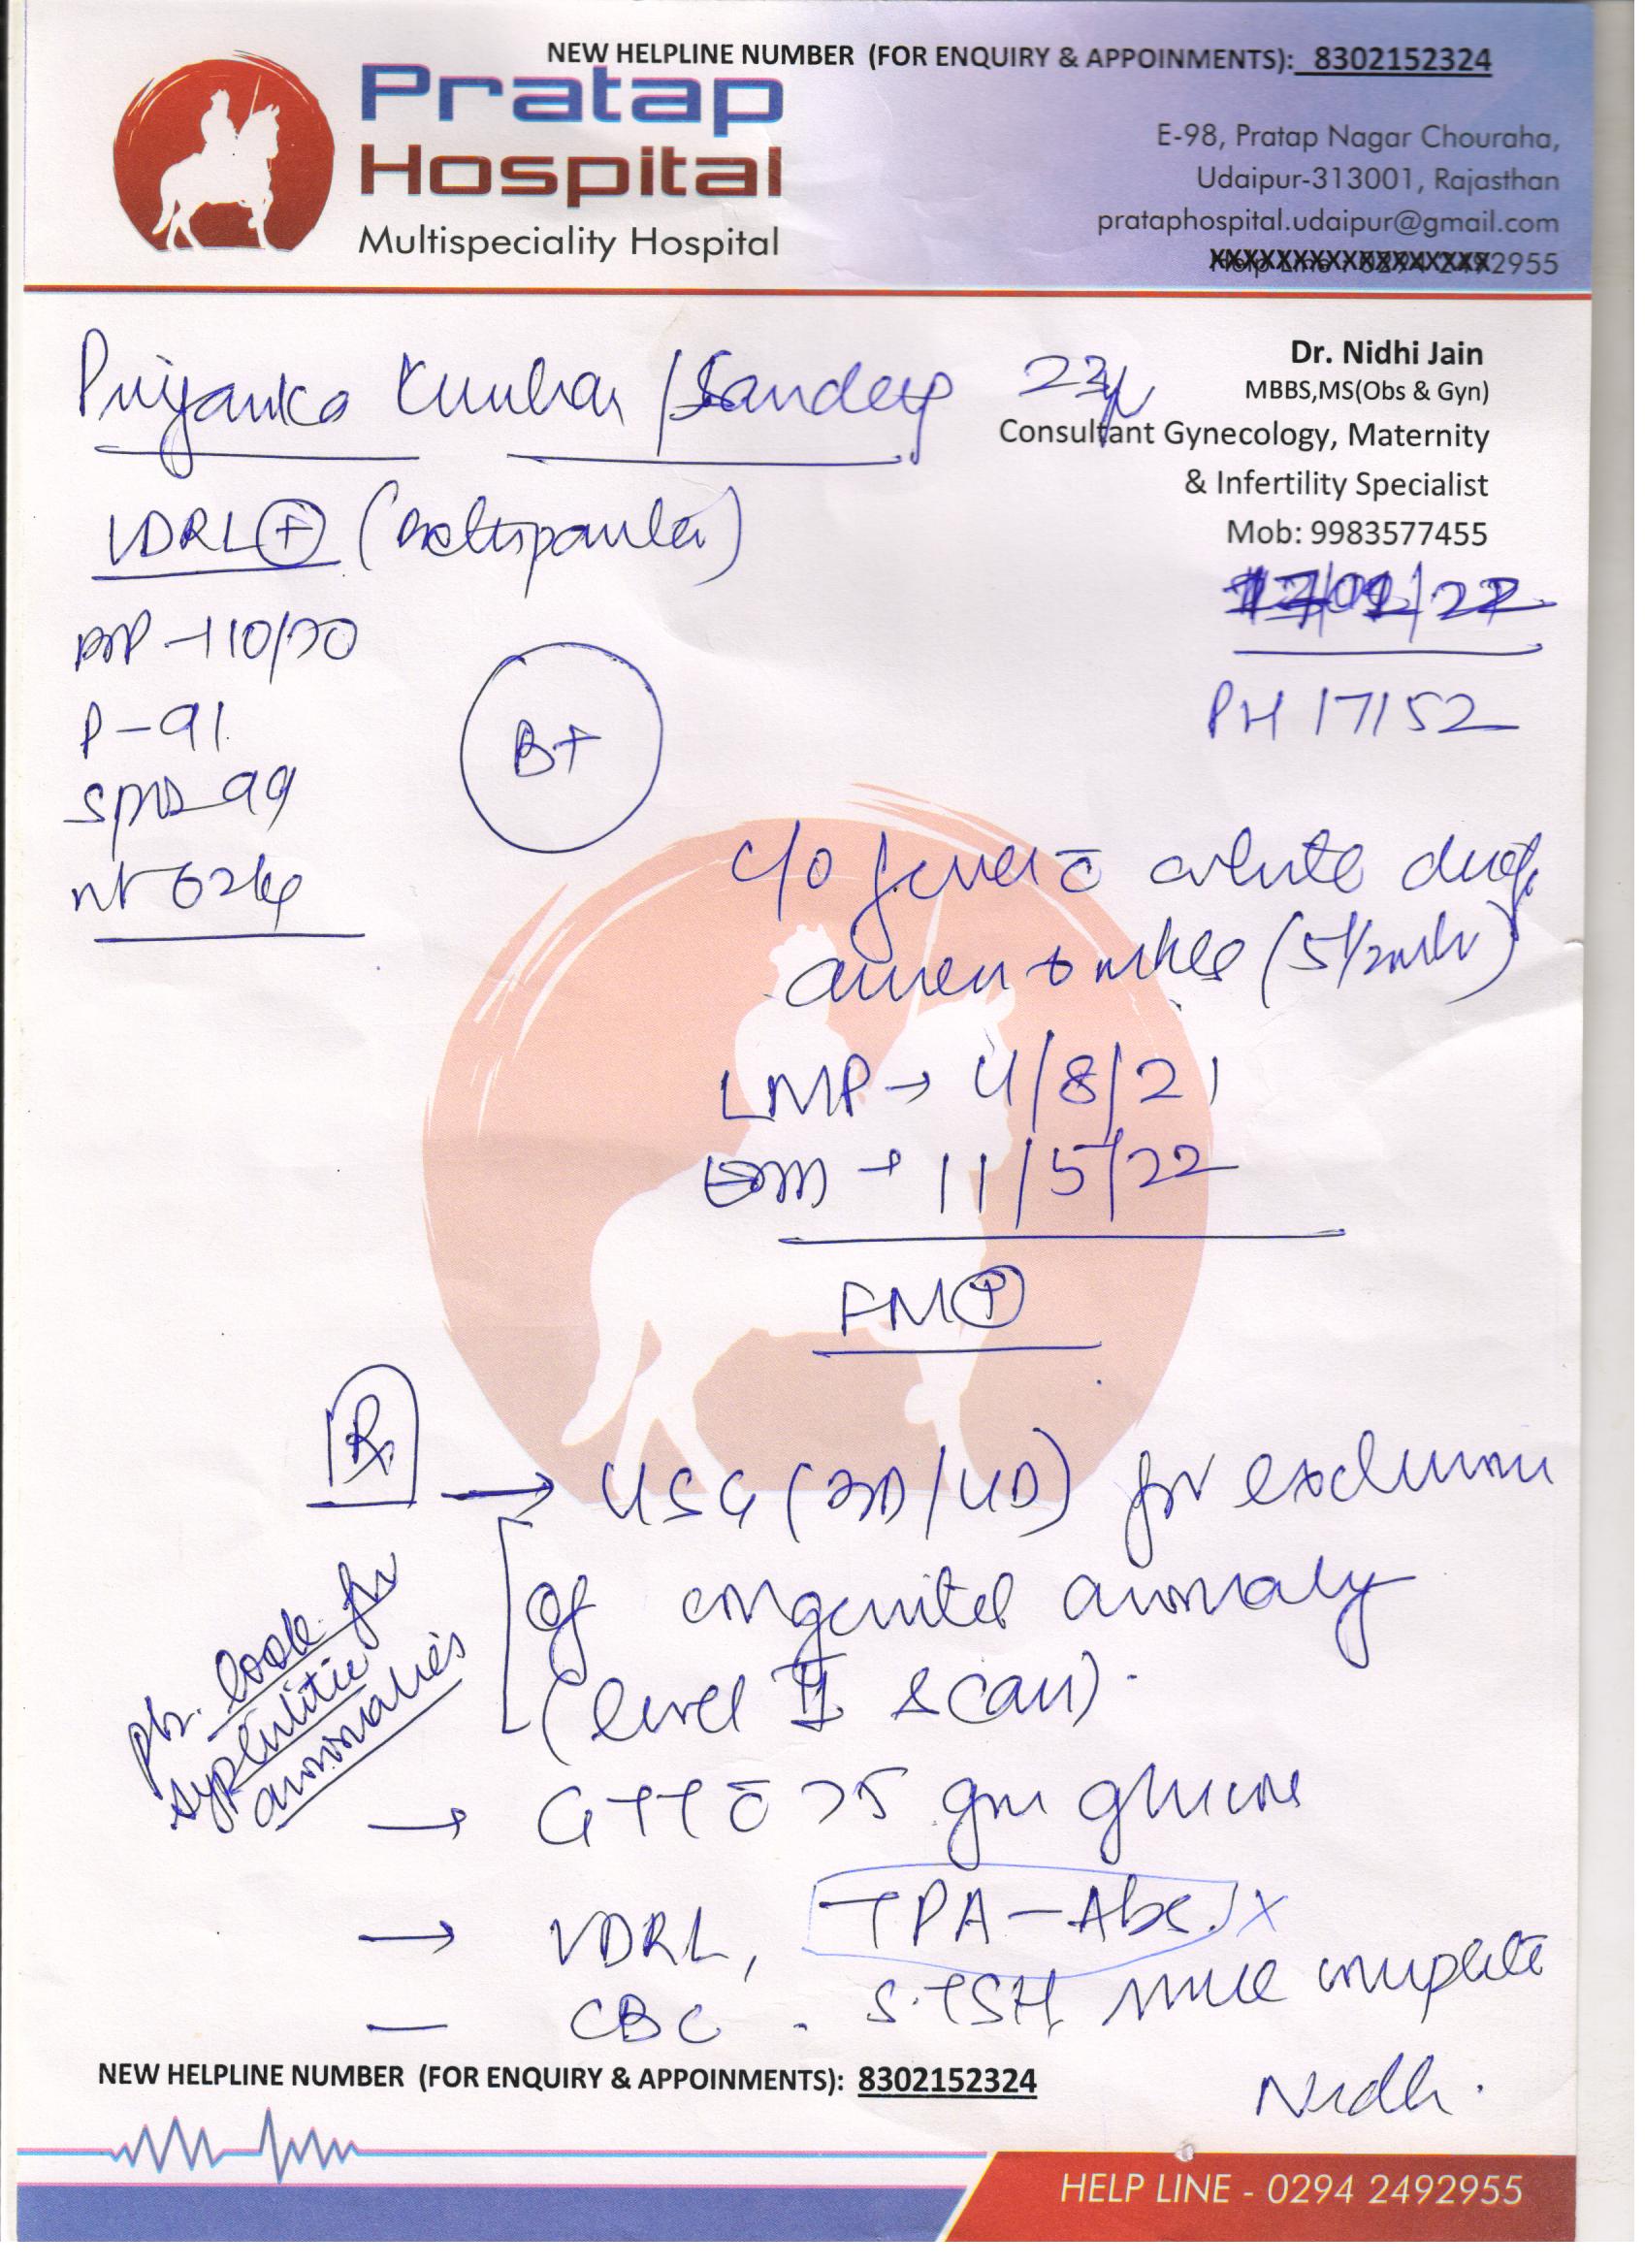 NEW HELPLINE NUMBER (FOR ENQUIRY & APPOINMENTS): 8302152324
Pratap
Hospital
Multispeciality Hospital
E-98, Pratap Nagar Chouraha,
Udaipur-313001, Rajasthan
prataphospital.udaipur@gmail.com
2955
Dr. Nidhi Jain
MBBS,MS(Obs & Gyn)
Consultant Gynecology, Maternity
& Infertility Specialist
Mob: 9983577455
Priyanka /Sandeep 23y
VDRL +
/22
BP - 110/70
PH 17152
P - 91
B+
SPO2 99
wt 62kg
c/o fever c̄ white
(5 1/2 mth)
LMP → 4/8/21
EDD → 11/5/22
FM +
Rx
→ USG (3D/4D) for exclusion
of congenital anomaly
(level II scan).
plz. look for
syphilitic
anomalies
→ GTT c̄ 75 gm glucose
→ VDRL, TPA-Abs. X
— CBC. S.TSH, complete
Nidhi.
NEW HELPLINE NUMBER (FOR ENQUIRY & APPOINMENTS): 8302152324
HELP LINE - 0294 2492955